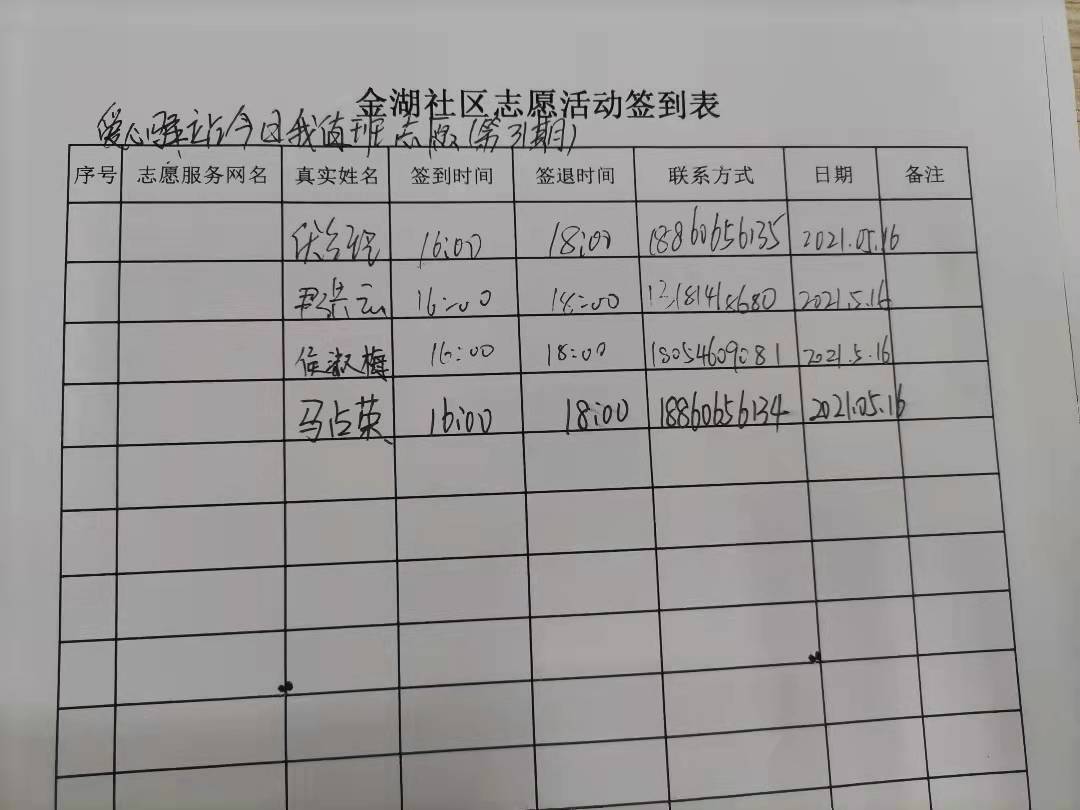 金湖社区志愿活动签到表
爱心驿站今日我值班志愿(第31期)
序号 志愿服务网名 真实姓名 签到时间 签退时间 联系方式 日期 备注
16:00 18:00 18860656135 2021.05.16
16:00 18:00 2021.5.16
侯淑梅 16:00 18:00 18054609081 2021.5.16
马占英 16:00 18:00 18860656134 2021.05.16